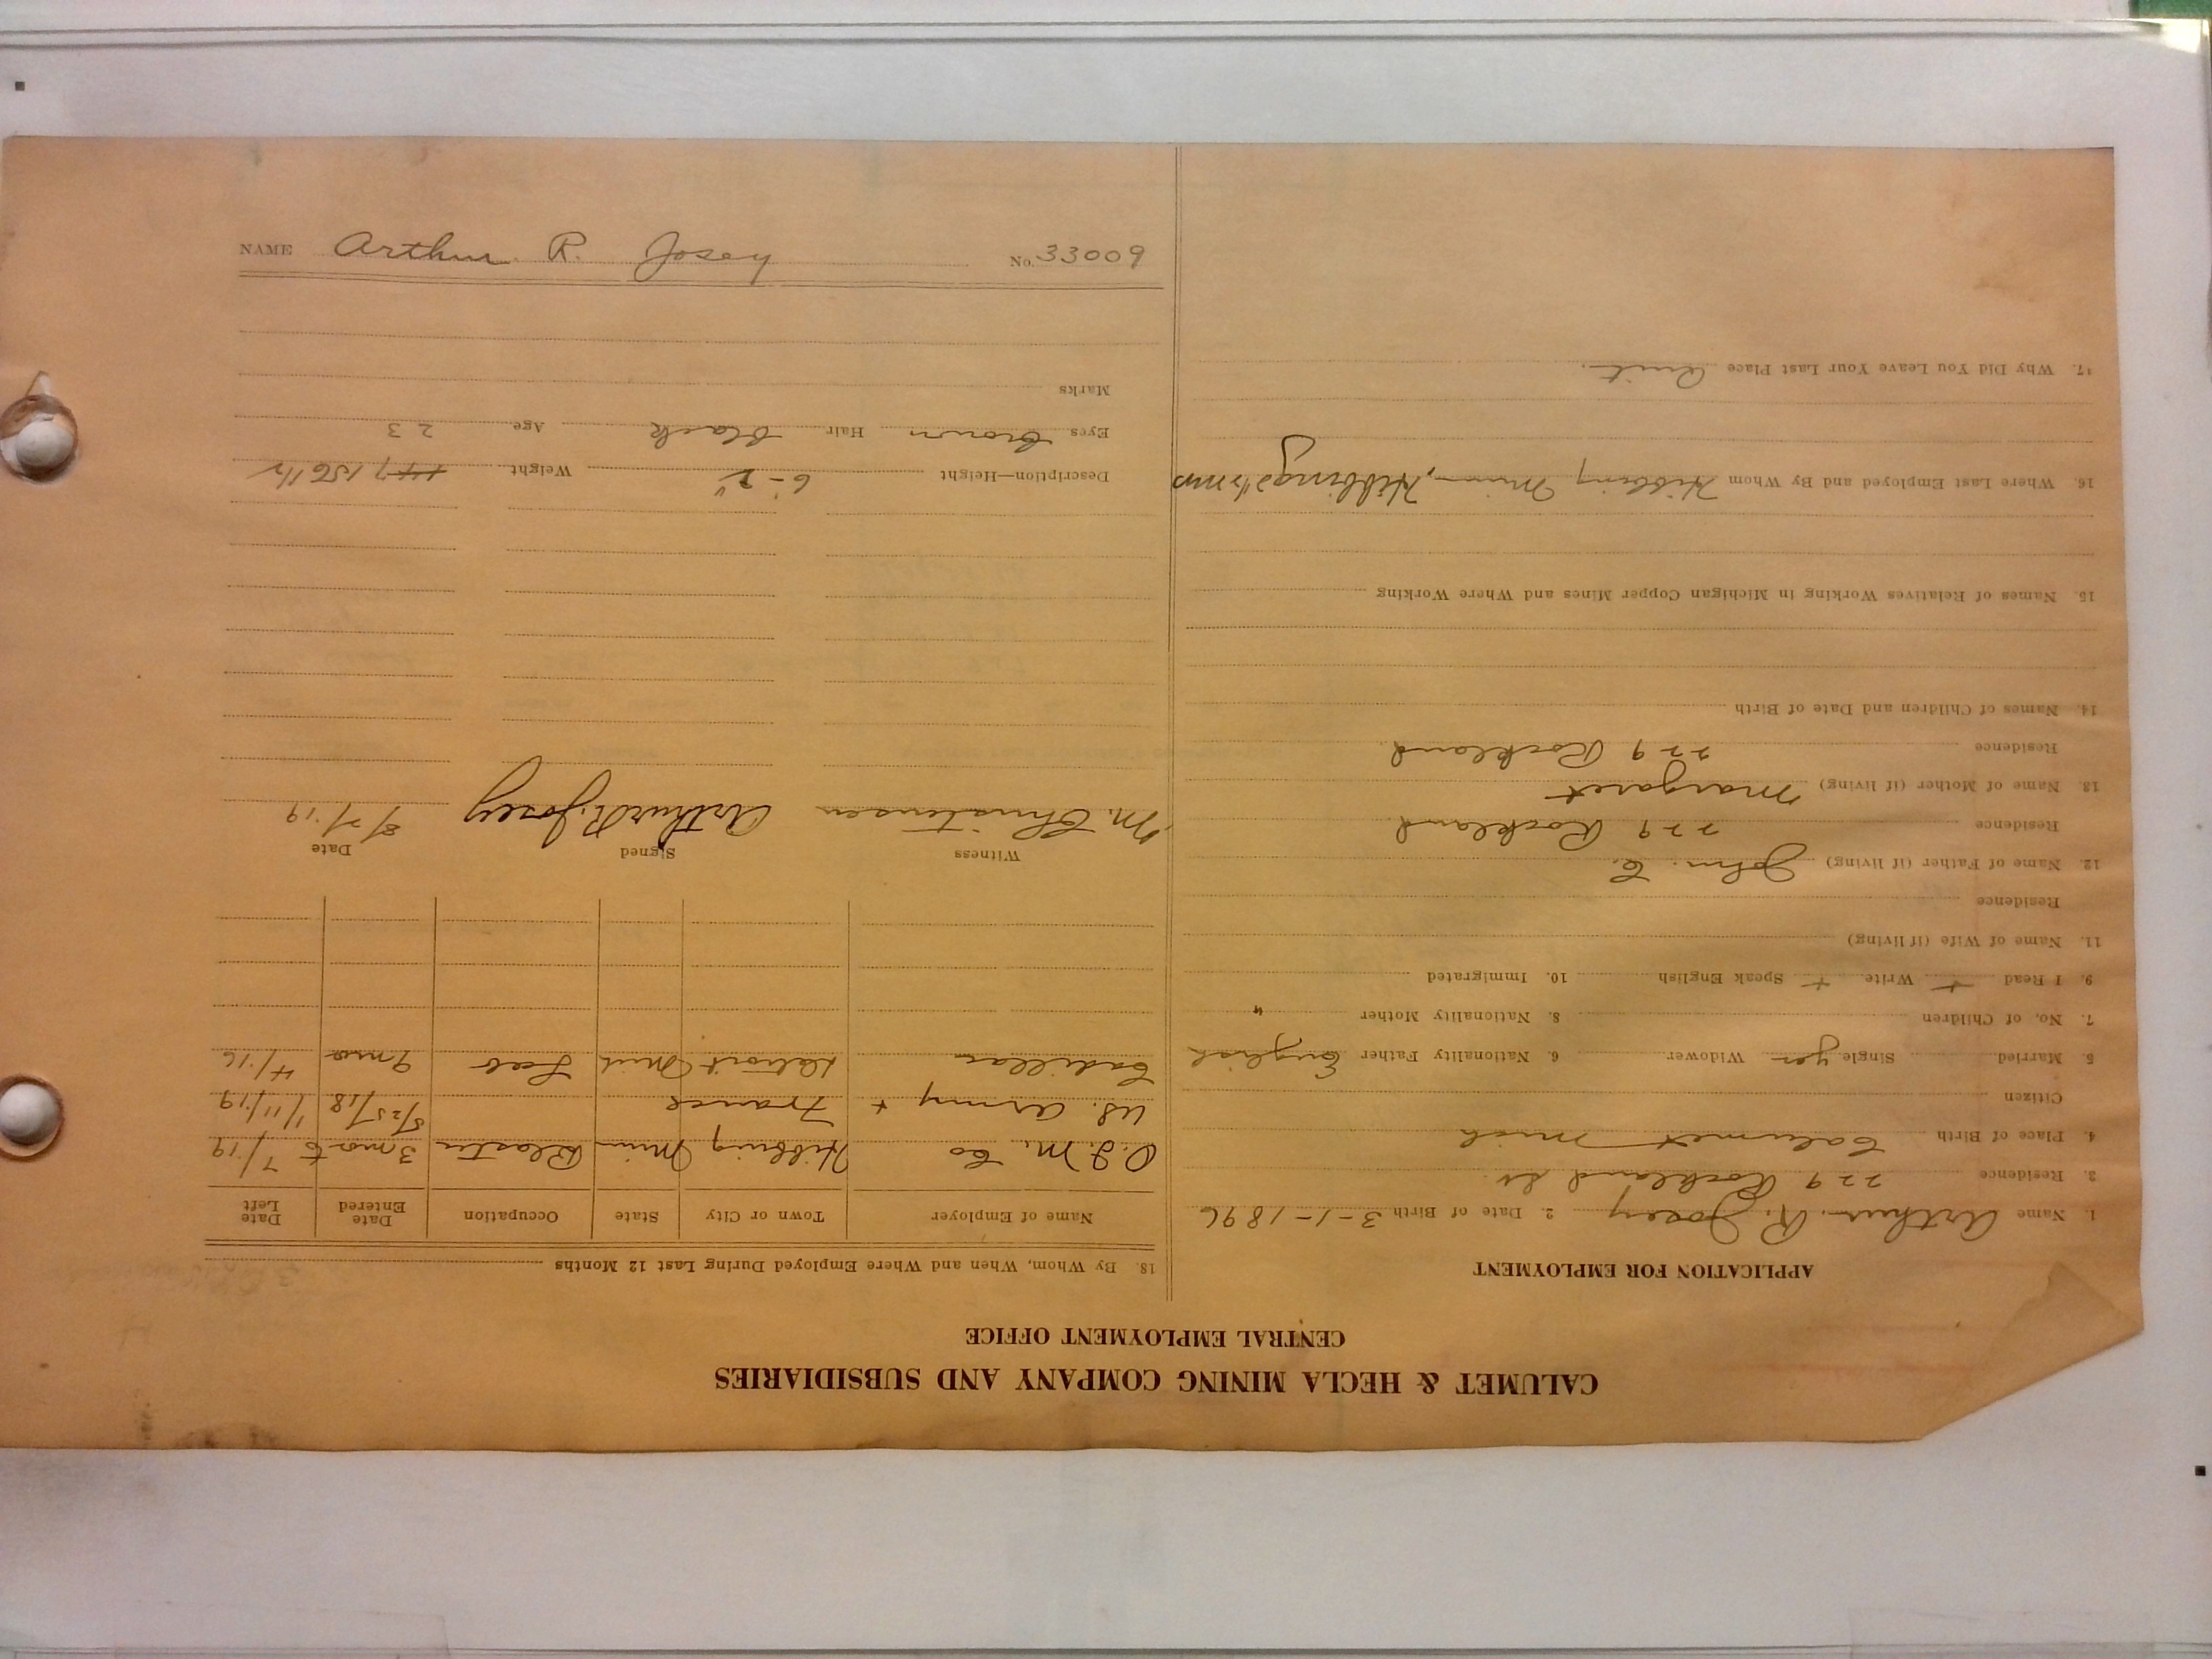 CALUMET & HECLA MINING COMPANY AND SUBSIDIARIES
CENTRAL EMPLOYMENT OFFICE
APPLICATION FOR EMPLOYMENT
1. Name Arthur R. Josey 2. Date of Birth 3-1-1896
3. Residence 229 Rockland St.
4. Place of Birth Calumet Mich
Citizen
5. Married Single yes Widower 6. Nationality Father English
7. No. of Children 8. Nationality Mother "
9. I Read + Write + Speak English 10. Immigrated
11. Name of Wife (if living)
Residence
12. Name of Father (if living) John. E.
Residence 229 Rockland
13. Name of Mother (if living) Margaret
Residence 229 Rockland
14. Names of Children and Date of Birth
15. Names of Relatives Working in Michigan Copper Mines and Where Working
16. Where Last Employed and By Whom Hibbing Minn, Hibbing
17. Why Did You Leave Your Last Place Quit.
18. By Whom, When and Where Employed During Last 12 Months
Name of Employer Town or City State Occupation Date Entered Date Left
O.I.M. Co Hibbing Minn Blaster 3 mos 7/19
U.S. Army + France 5/25/18 1/11/19
Cadillac Detroit Mich Lab 9 mos 4/16
Witness Signed Date
M. Christensen Arthur R. Josey 8/2/19
Description—Height 6-2" Weight 147 156 1/2
Eyes Brown Hair Black Age 23
Marks
NAME Arthur R. Josey No. 33009